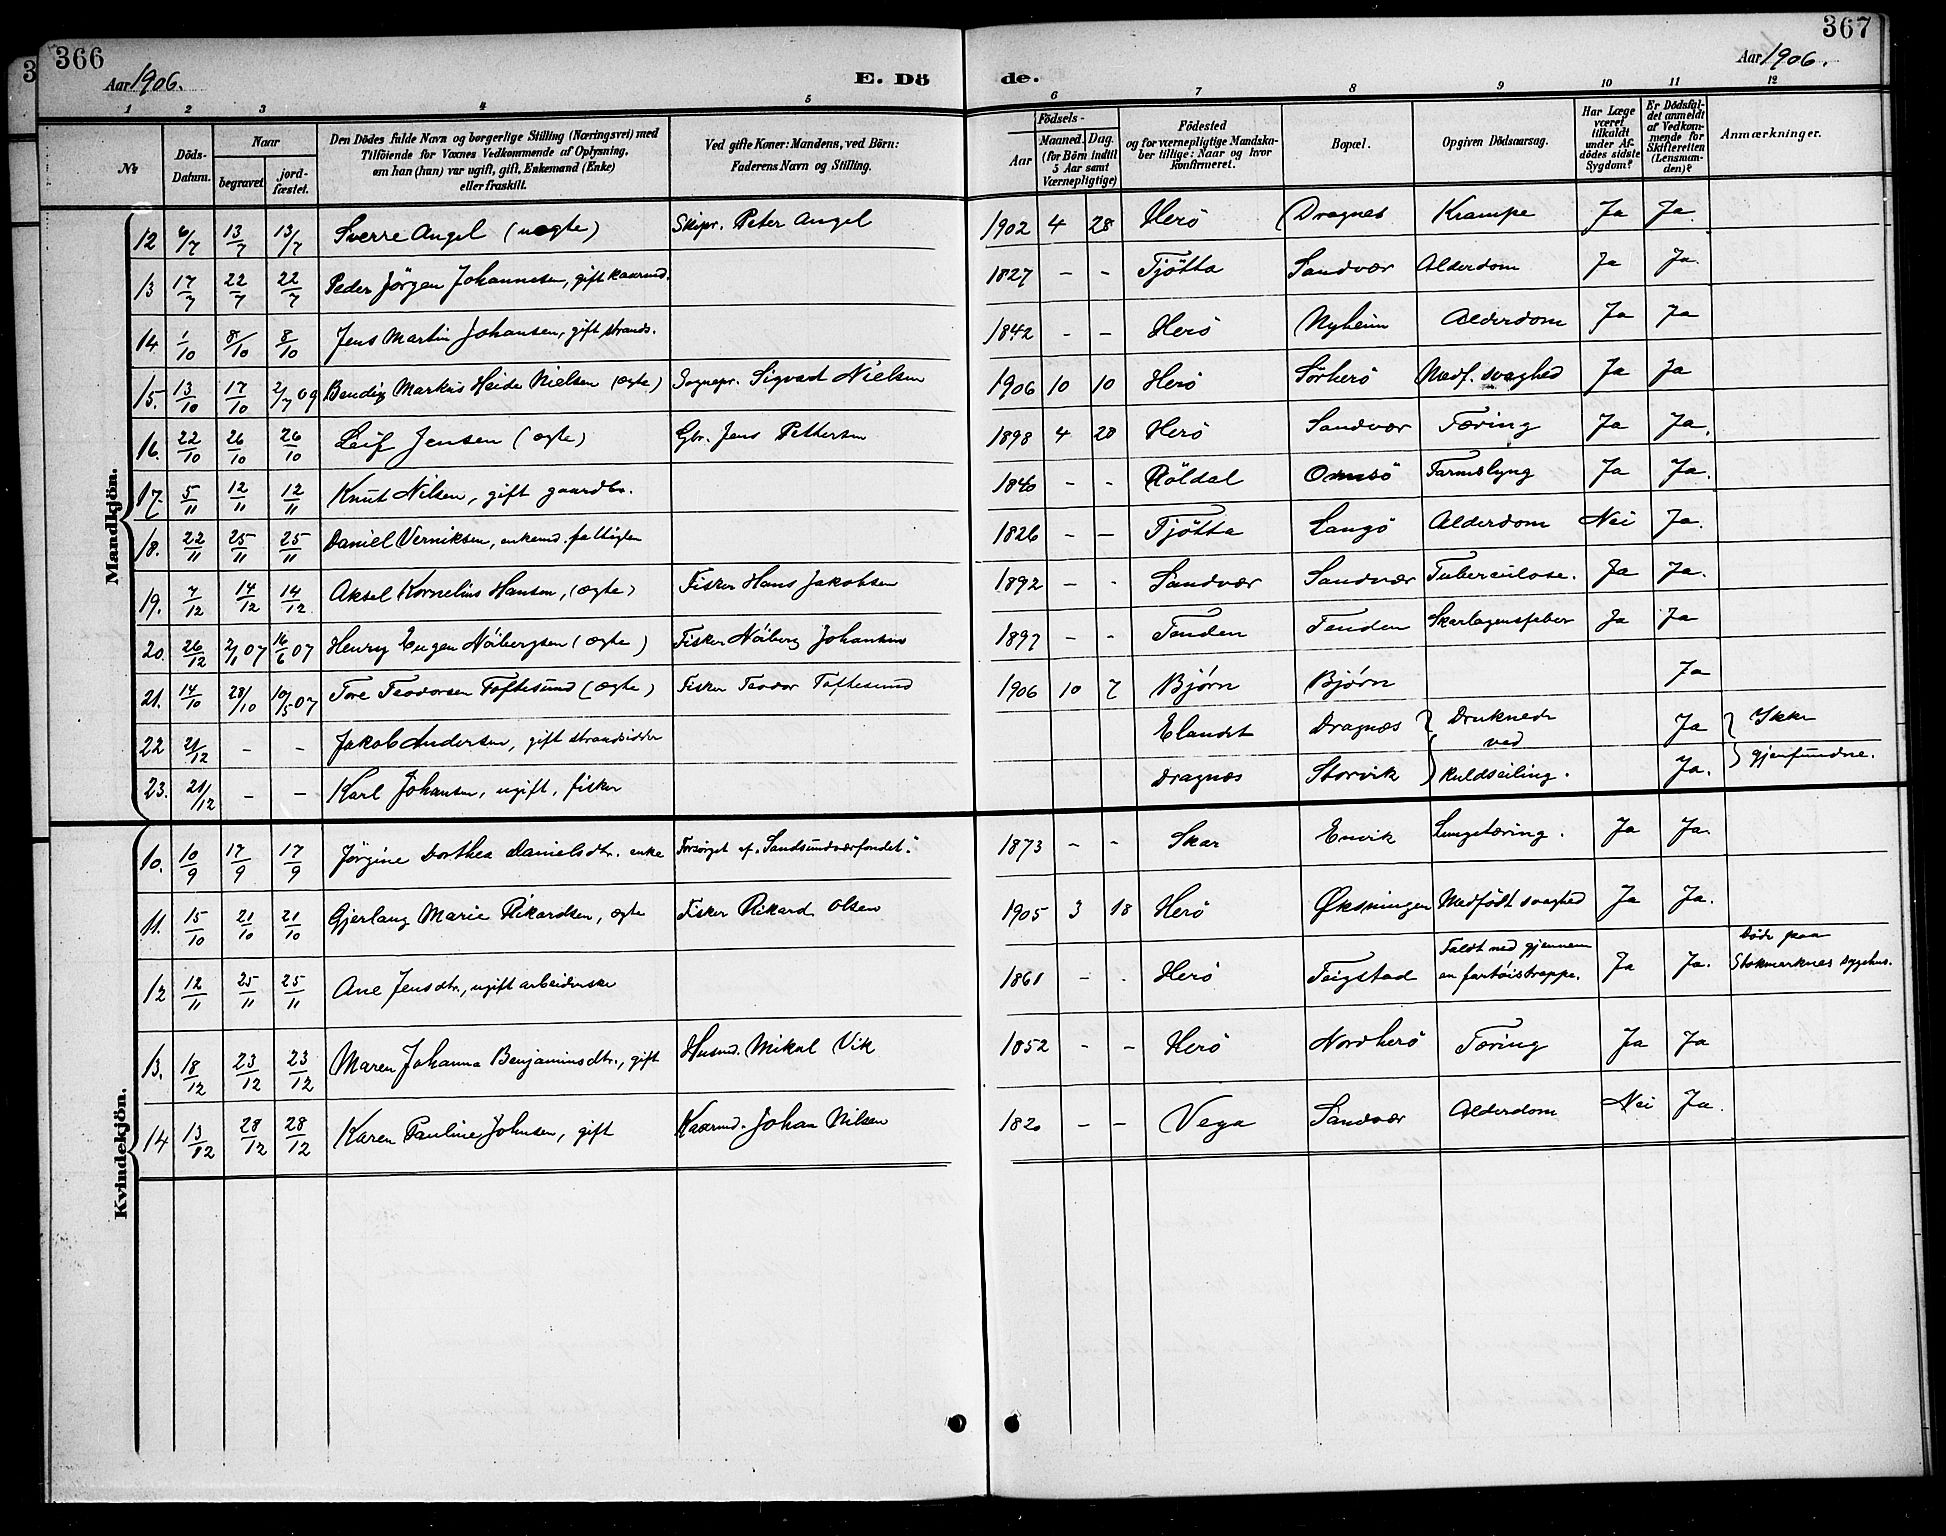 366
367
3
Aar 1906.
E. Dö
de.
Aar 1906.
1 2 3 4 5 6 7 8 9 10 11 12
Nr
Döds-Datum.
Naar
begravet
jord-fæstet.
Den Dödes fulde Navn og borgerlige Stilling (Næringsvei) med
Tilföiende for Voxnes Vedkommende af Oplysning,
om han (hun) var ugift, gift, Enkemand (Enke)
eller fraskilt.
Ved gifte Koner: Mandens, ved Börn:
Faderens Navn og Stilling.
Födsels-
Aar
Maaned. Dag.
(for Börn indtil
5 Aar samt
Værnepligtige)
Födested
og for værnepligtige Mandska-
ber tillige: Naar og hvor
konfirmeret.
Bopæl.
Opgiven Dödsaarsag.
Har Læge
været
tilkaldt
under Af-
dödes sidste
Sygdom?
Er Dödsfal-
det anmeldt
af Vedkom-
mende for
Skifteretten
(Lensman-
den)?
Anmærkninger.
Mandkjön.
12 6/7 13/7 13/7 Sverre Angel (uægte) Skipr. Peter Angel 1902 4 28 Herö Dragnes Krampe Ja Ja.
13 17/7 22/7 22/7 Peder Jörgen Johannesen, gift kaarmd. 1827 - - Tjötta Sandvær Alderdom Ja Ja.
14. 1/10 8/10 8/10 Jens Martin Johansen, gift strands. 1842 - - Herö Nyheim Alderdom Ja Ja
15. 13/10 17/10 2/7 09 Bendix Markus Heide Nielsen (ægte) Sognepr. Sigvard Nielsen 1906 10 10 Herö Sörherö Medf. svaghed Ja Ja
16. 22/10 26/10 26/10 Leif Jensen (ægte) Gbr. Jens Pettersen 1898 4 28 Herö Sandvær Tæring Ja Ja.
17. 5/11 12/11 12/11 Knut Nilsen, gift gaardbr. 1840 - - Röldal Omsö Tarmslyng Ja Ja.
18. 22/11 25/11 25/11 Daniel Verniksen, enkemd. fattiglem 1826 - - Tjötta Langö Alderdom Nei Ja.
19. 7/12 14/12 14/12 Aksel Kornelius Hansen, (ægte) Fisker Hans Jakobsen 1892 - - Sandvær Sandvær Tuberculose. Ja Ja.
20. 26/12 2/1 07 16/6 07 Henry Eugen Nöibergsen (ægte) Fisker Nöiberg Johansen 1897 - - Tenden Tenden Skarlagensfeber Ja Ja
21. 14/10 28/10 10/5 07 Tore Teodorsen Toftesund (ægte) Fisker Teodor Toftesund 1906 10 7 Bjørn Bjørn Ja
22 21/12 - - Jakob Andersen, gift strandsidder Elandet Dragnæs Druknede ved Ja Ikke
23. 21/12 - - Karl Johansen, ugift, fisker Dragnæs Storvik kuldseiling. Ja. gjenfundne.
Kvindekjön.
10. 10/9 17/9 17/9 Jörgine Dorthea Danielsdtr. enke Forsörget af "Sandsundværfondet". 1873 - - Skar Envik Lungetæring. Ja Ja.
11. 15/10 21/10 21/10 Gjerlaug Marie Rikardsen, ægte Fisker Rikard Olsen 1905 3 18 Herö Øksningen Medfödt svaghed Ja Ja.
12 12/11 25/11 25/11 Ane Jensdtr., ugift arbeiderske 1861 - Herö Teigstad Faldt ned gjennem en fartöistrappe. Ja Ja. Döde paa Stokmarknes sygehus.
13. 18/12 23/12 23/12 Maren Johanna Benjaminsdtr., gift Husmd. Mikal Vik 1852 - - Herö Nordherö Tæring Ja Ja
14 13/12 28/12 28/12 Karen Pauline Johnsen, gift Kaarmd. Johan Nilsen 1820 - - Vega Sandvær Alderdom Nei Ja.